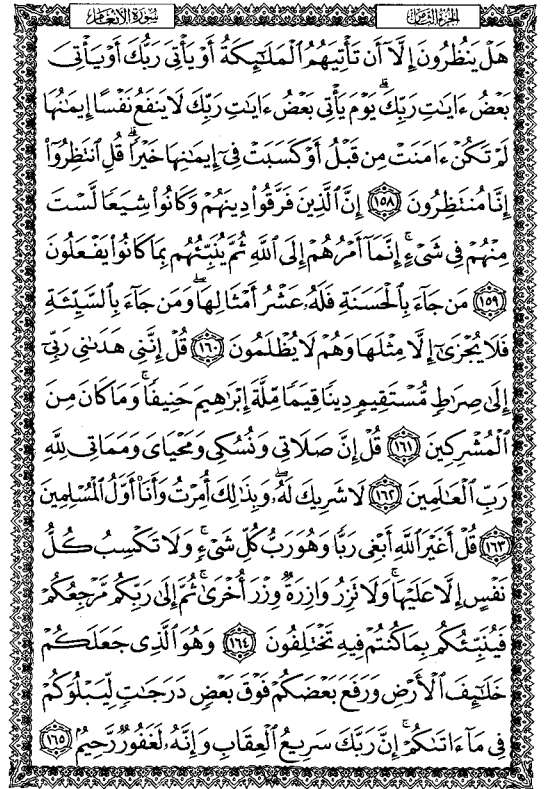 سورة الأنعام الجزء الثامن
هَلْ يَنظُرُونَ إِلَّآ أَن تَأْتِيَهُمُ ٱلْمَلَٰٓئِكَةُ أَوْ يَأْتِىَ رَبُّكَ أَوْ يَأْتِىَ
بَعْضُ ءَايَٰتِ رَبِّكَ ۗ يَوْمَ يَأْتِى بَعْضُ ءَايَٰتِ رَبِّكَ لَا يَنفَعُ نَفْسًا إِيمَٰنُهَا
لَمْ تَكُنْ ءَامَنَتْ مِن قَبْلُ أَوْ كَسَبَتْ فِىٓ إِيمَٰنِهَا خَيْرًا ۗ قُلِ ٱنتَظِرُوٓا۟
إِنَّا مُنتَظِرُونَ ١٥٨ إِنَّ ٱلَّذِينَ فَرَّقُوا۟ دِينَهُمْ وَكَانُوا۟ شِيَعًا لَّسْتَ
مِنْهُمْ فِى شَىْءٍ ۚ إِنَّمَآ أَمْرُهُمْ إِلَى ٱللَّهِ ثُمَّ يُنَبِّئُهُم بِمَا كَانُوا۟ يَفْعَلُونَ
١٥٩ مَن جَآءَ بِٱلْحَسَنَةِ فَلَهُۥ عَشْرُ أَمْثَالِهَا ۖ وَمَن جَآءَ بِٱلسَّيِّئَةِ
فَلَا يُجْزَىٰٓ إِلَّا مِثْلَهَا وَهُمْ لَا يُظْلَمُونَ ١٦٠ قُلْ إِنَّنِى هَدَىٰنِى رَبِّىٓ
إِلَىٰ صِرَٰطٍ مُّسْتَقِيمٍ دِينًا قِيَمًا مِّلَّةَ إِبْرَٰهِيمَ حَنِيفًا ۚ وَمَا كَانَ مِنَ
ٱلْمُشْرِكِينَ ١٦١ قُلْ إِنَّ صَلَاتِى وَنُسُكِى وَمَحْيَاىَ وَمَمَاتِى لِلَّهِ
رَبِّ ٱلْعَٰلَمِينَ ١٦٢ لَا شَرِيكَ لَهُۥ ۖ وَبِذَٰلِكَ أُمِرْتُ وَأَنَا۠ أَوَّلُ ٱلْمُسْلِمِينَ
١٦٣ قُلْ أَغَيْرَ ٱللَّهِ أَبْغِى رَبًّا وَهُوَ رَبُّ كُلِّ شَىْءٍ ۚ وَلَا تَكْسِبُ كُلُّ
نَفْسٍ إِلَّا عَلَيْهَا ۚ وَلَا تَزِرُ وَازِرَةٌ وِزْرَ أُخْرَىٰ ۚ ثُمَّ إِلَىٰ رَبِّكُم مَّرْجِعُكُمْ
فَيُنَبِّئُكُم بِمَا كُنتُمْ فِيهِ تَخْتَلِفُونَ ١٦٤ وَهُوَ ٱلَّذِى جَعَلَكُمْ
خَلَٰٓئِفَ ٱلْأَرْضِ وَرَفَعَ بَعْضَكُمْ فَوْقَ بَعْضٍ دَرَجَٰتٍ لِّيَبْلُوَكُمْ
فِى مَآ ءَاتَىٰكُمْ ۗ إِنَّ رَبَّكَ سَرِيعُ ٱلْعِقَابِ وَإِنَّهُۥ لَغَفُورٌ رَّحِيمٌۢ ١٦٥